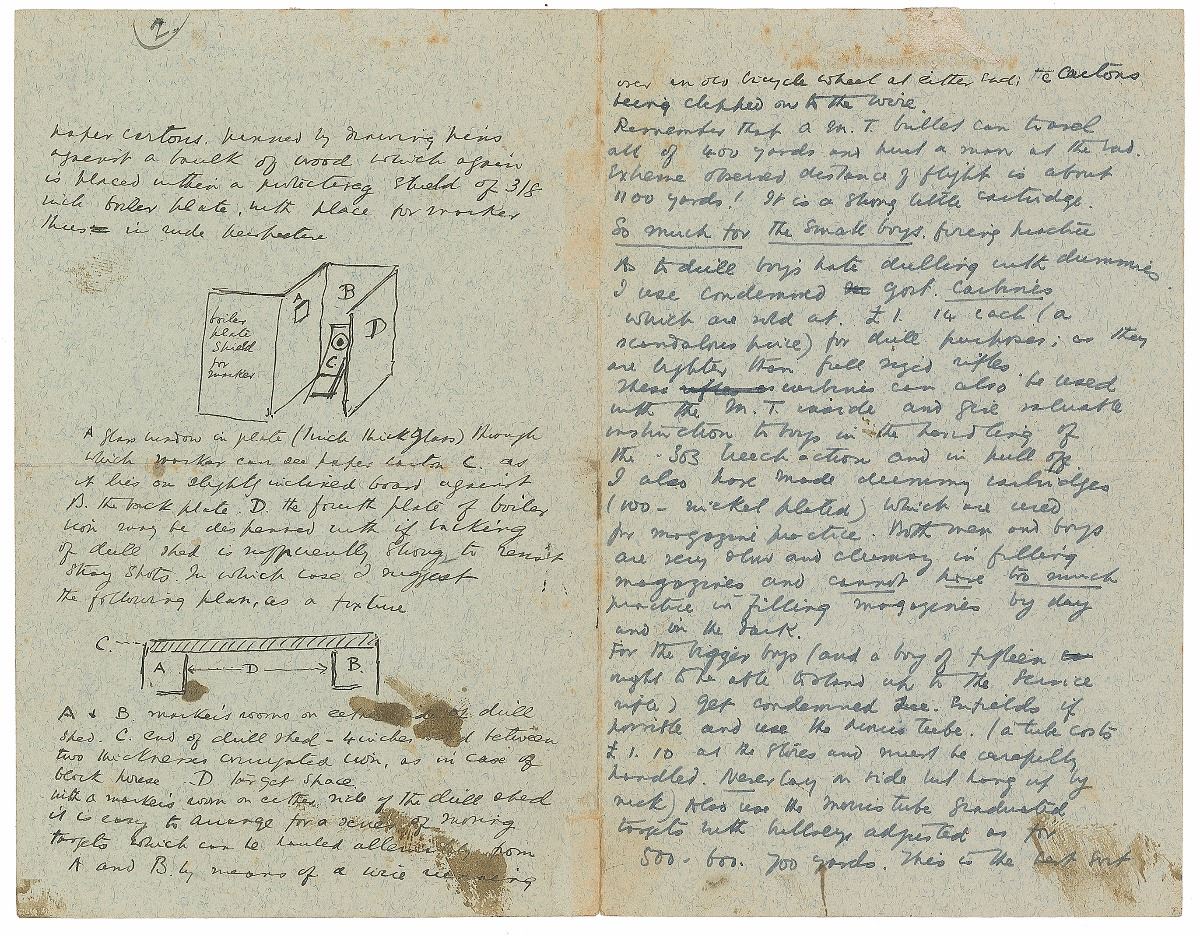 2
paper cartons. pinned by drawing pins
against a baulk of wood which again
is placed within a protecting shield of 3/8
inch boiler plate, with place for marker
thus in rude perspective
boiler
plate
shield
for
marker
A
B
C
D
A glass window in plate (1 inch thick glass) through
which marker can see paper carton C. as
it lies on slightly inclined board against
B. the back plate. D. the fourth plate of boiler
iron may be dispensed with if backing
of drill shed is sufficiently strong to resist
stray shots. In which case I suggest
the following plan, as a fixture
C.
A
D
B.
A & B. marker's rooms on either side of drill
shed. C. end of drill shed - 4 inches between
two thicknesses corrugated iron, as in case of
block house. D target space
with a marker's room on either side of the drill shed
it is easy to arrange for a series of moving
targets which can be hauled alternately from
A and B. by means of a wire running
over an old bicycle wheel at either end; the cartons
being clipped on to the wire.
Remember that a M. T. bullet can travel
all of 400 yards and hurt a man at the end.
Extreme observed distance of flight is about
1100 yards! It is a strong little cartridge.
So much for the small boys firing practice
As to drill boys hate drilling with dummies
I use condemned govt. carbines
which are sold at £1. 14 each (a
scandalous price) for drill purposes: as they
are lighter than full sized rifles.
These carbines can also be used
with the M. T. inside and give valuable
instruction to boys in the handling of
the .303 breech action and in pull off
I also have made dummy cartridges
(100 - nickel plated) which are used
for magazine practice. Both men and boys
are very slow and clumsy in filling
magazines and cannot have too much
practice in filling magazines by day
and in the dark.
For the bigger boys (and a boy of fifteen
ought to be able to stand up to the service
rifle) get condemned Lee. Enfields if
possible and use the morris tube. (a tube costs
£1. 10 at the stores and must be carefully
handled. Never lay on side but hang up by
neck) Also use the morris tube graduated
targets with bullseye adjusted as for
500 - 600. 700 yards. This is the best sort